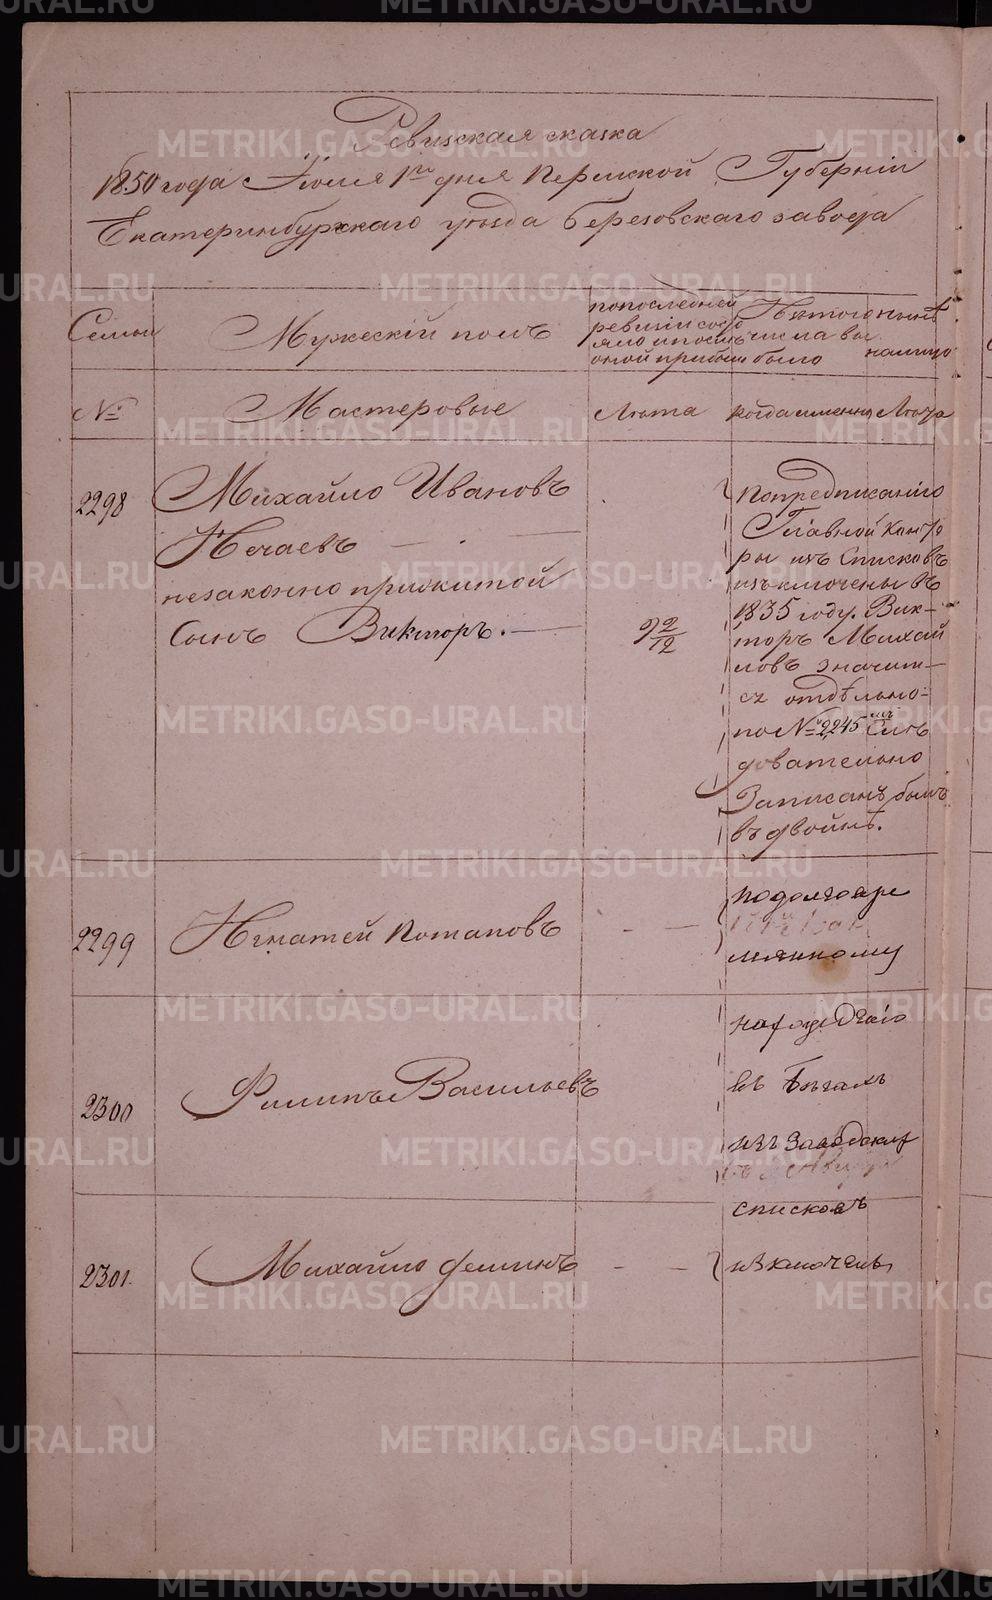 Ревизская сказка
1850 года Июля 1го дня Пермской Губерніи
Екатеринбургскаго уѣзда Березовскаго завода
Семьи
Мужескій полъ
по последней
ревизіи состо
яло и послѣ
оной прибыло
Изъ того
числа вы
было
нынѣ
налицо
№
Мастеровые
Лѣта
когда именно
Лѣта
2298
Михайло Ивановъ
Нечаевъ
незаконно прижитой
Сынъ Викторъ.
9 2/12
По предписанію
Главной Конто
ры изъ Списковъ
изъключены въ
1835 году. Вик-
торъ Михай
ловъ значит-
ся отдѣльно
по № 2245 Слѣ
довательно
Записанъ былъ
въ двойнѣ.
2299
Игнатей Потаповъ
2300
Филипъ Васильевъ
2301.
Михайло Феминъ
по долговре
мянному
нахожденію
въ бѣгахъ
изъ Заводских
списковъ
изключены
METRIKI.GASO-URAL.RU